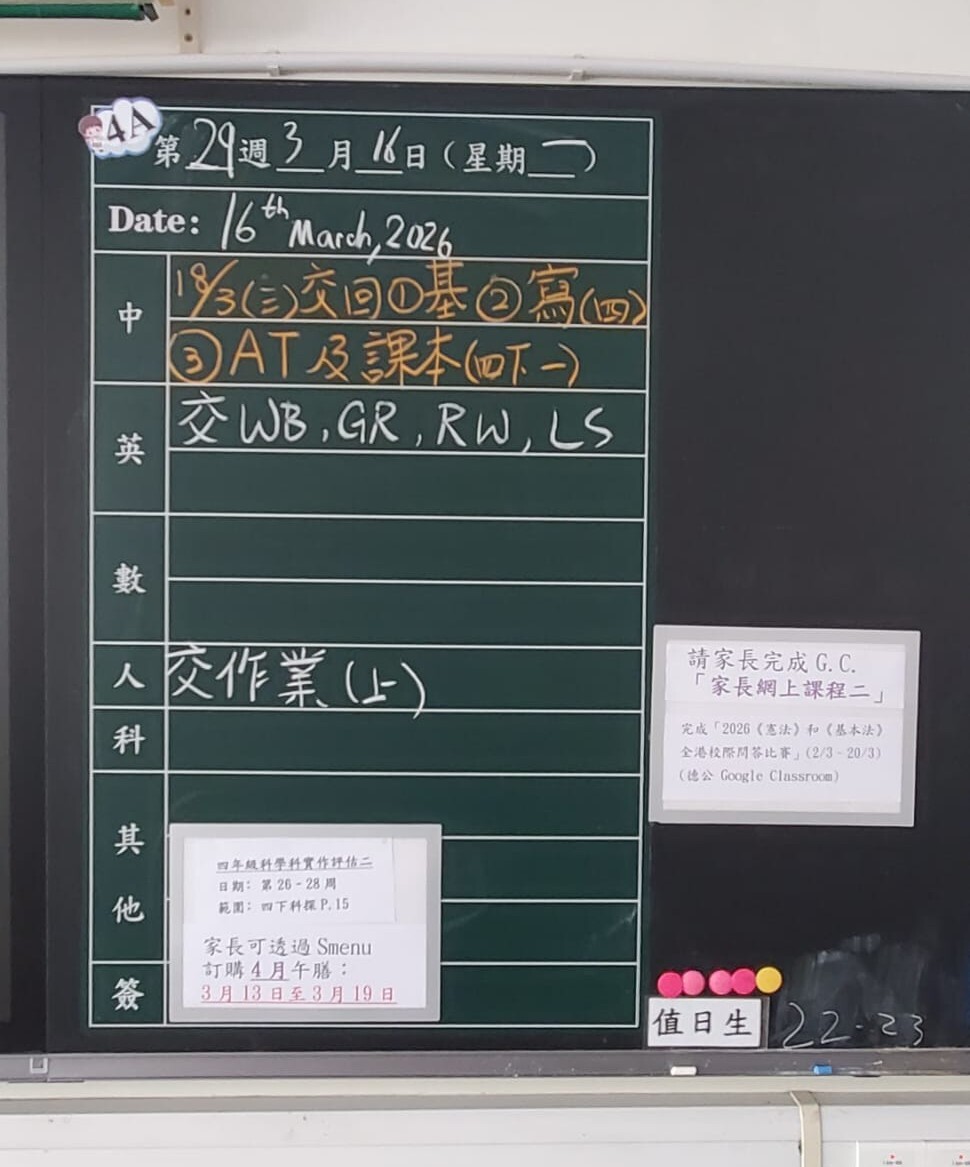 4A
第29週3月16日(星期一)
Date: 16th March, 2026
中
18/3(三)交回①基②寫(四)
③AT及課本(四下一)
英
交WB, GR, RW, LS
數
人
交作業(上)
科
其
他
四年級科學科實作評估二
日期: 第26-28周
範圍: 四下科探P.15
家長可透過Smenu
訂購4月午膳:
3月13日至3月19日
簽
請家長完成G.C.
「家長網上課程二」
完成「2026《憲法》和《基本法》
全港校際問答比賽」(2/3-20/3)
(德公 Google Classroom)
值日生 22-23